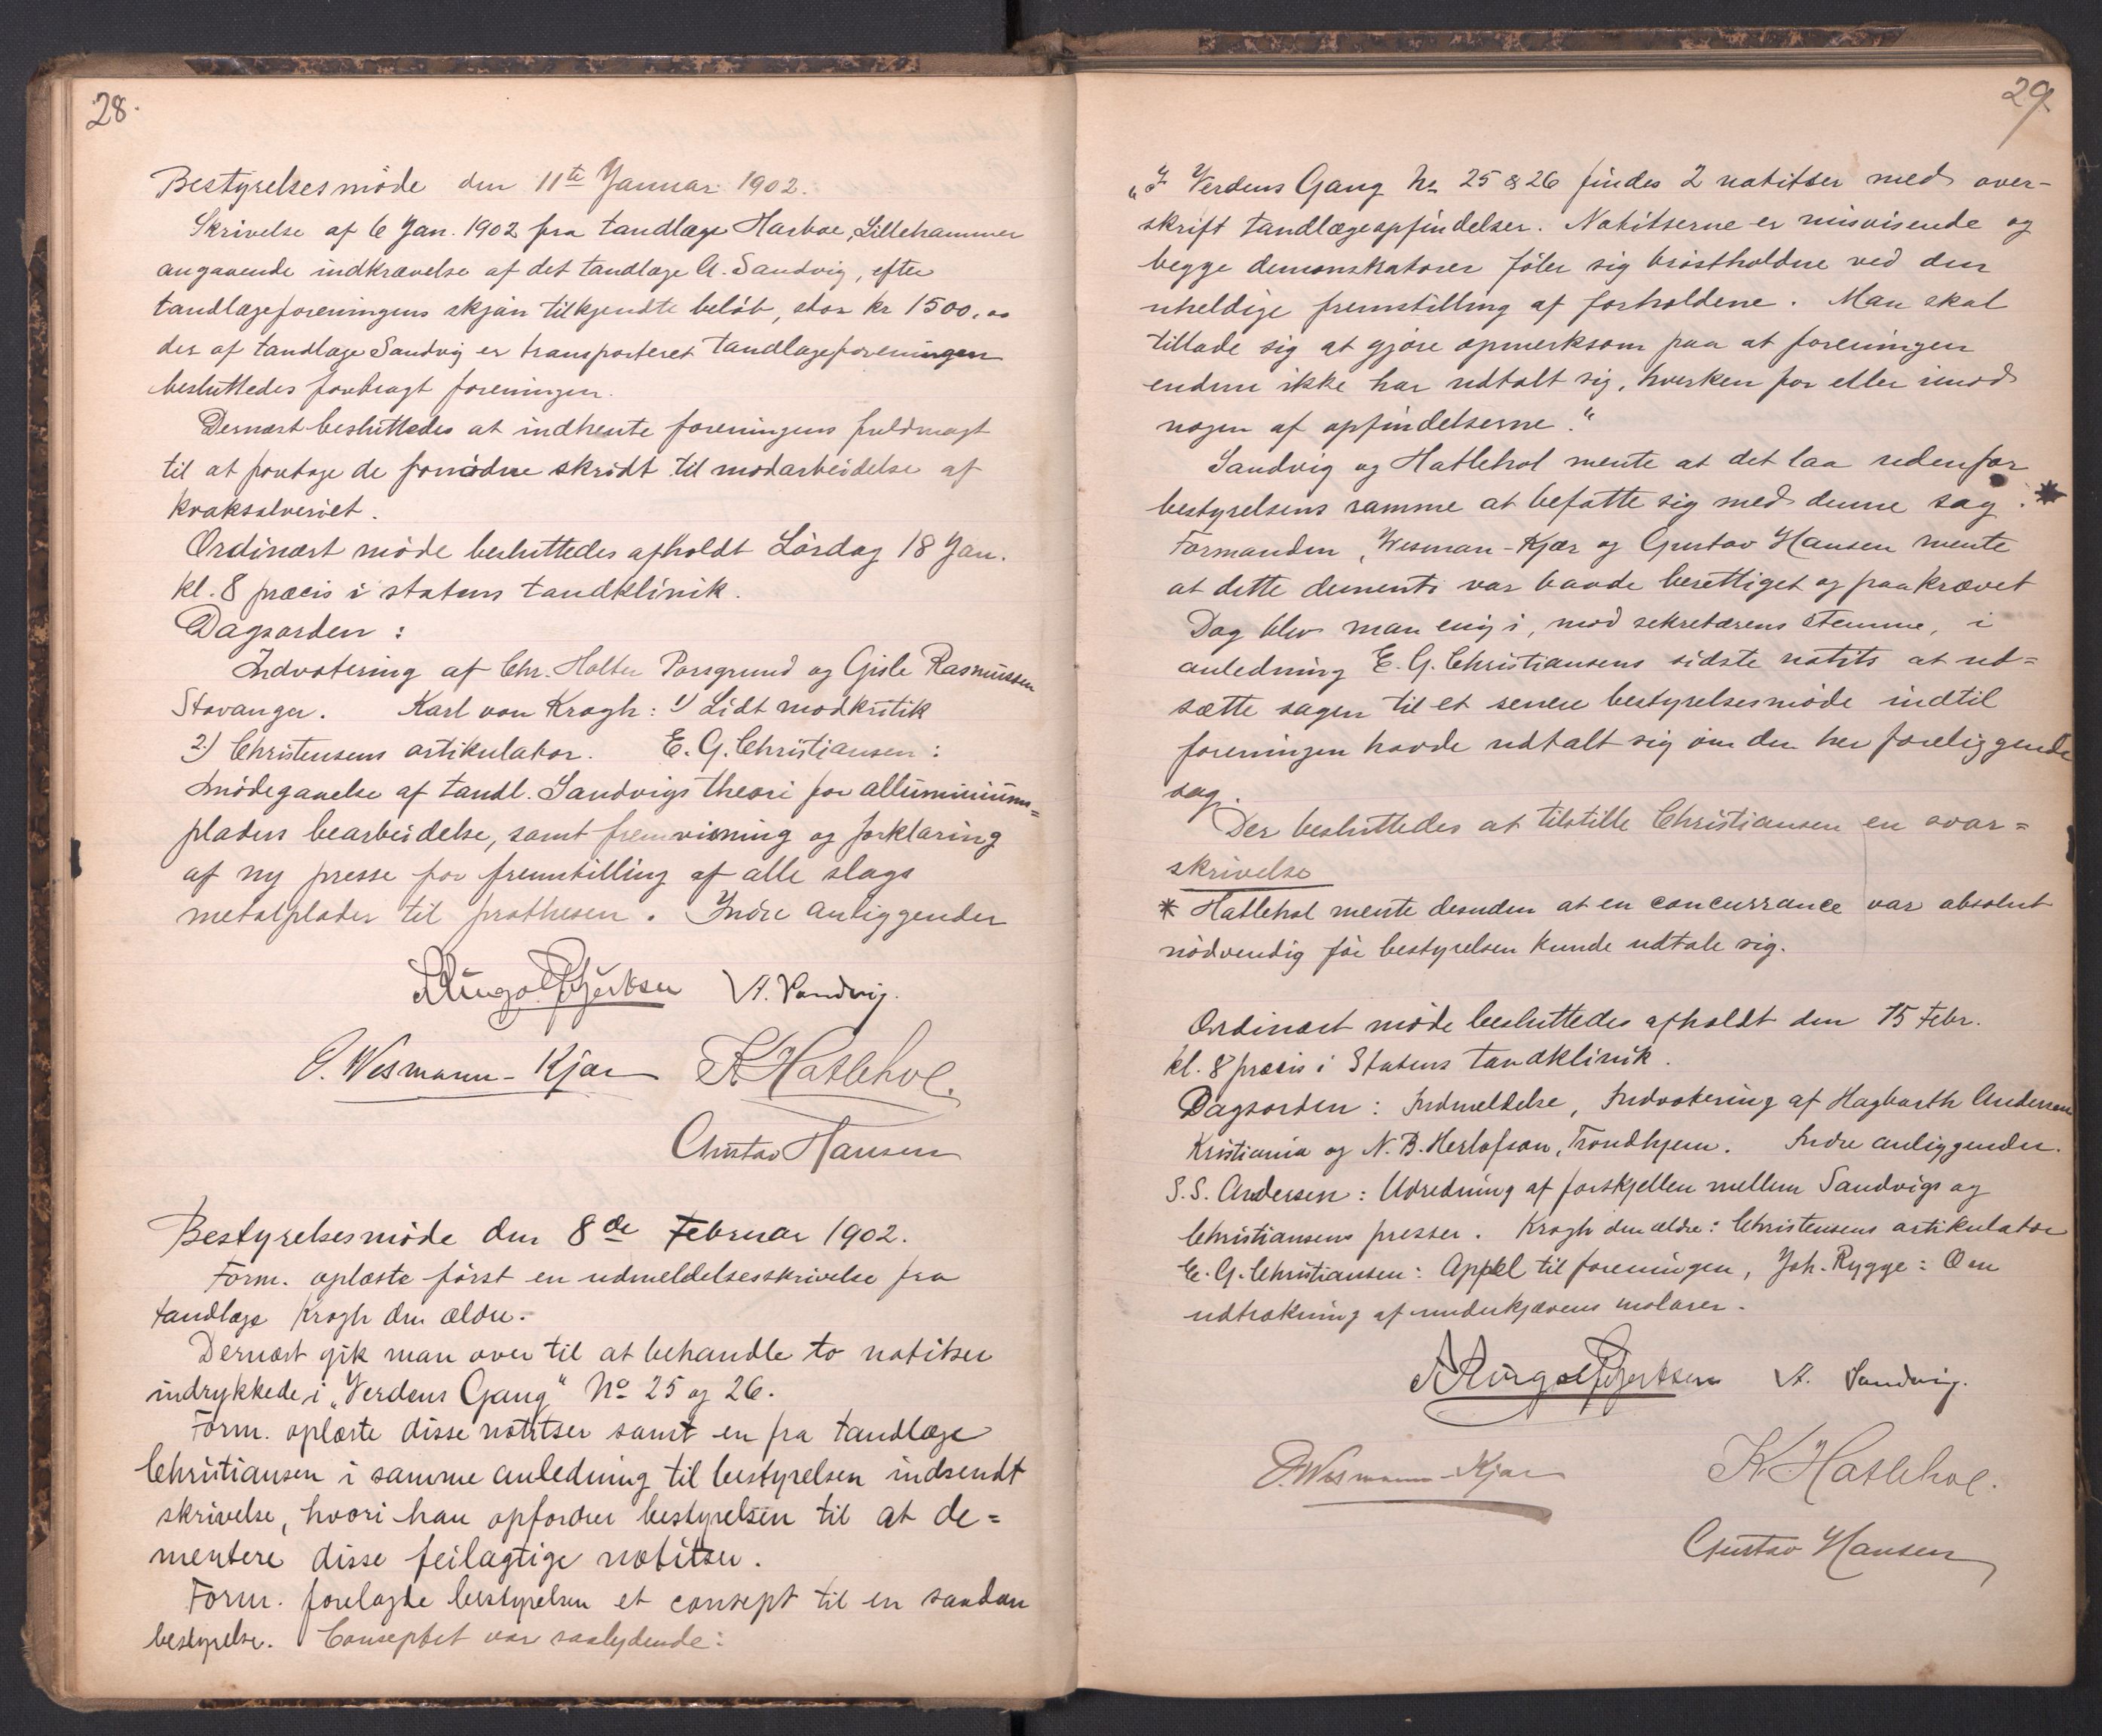 28.
Bestyrelsesmöde den 11te Januar 1902.
Skrivelse af 6 Jan. 1902 fra tandlæge Harboe, Lillehammer
angaaende indkrævelse af det tandlæge A. Sandvig, efter
tandlægeforeningens skjön tilkjendte belöb, stor kr 1500,00
der af tandlæge Sandvig er transporteret tandlægeforeningen
besluttedes forebragt foreningen.
Dernæst besluttedes at indhente foreningens fuldmagt
til at foretage de fornödne skridt til modarbeidelse af
kvaksalveriet.
Ordinært möde besluttedes afholdt Lördag 18 Jan.
kl. 8 præcis i statens tandklinik.
Dagsorden:
Indvotering af Chr. Holter Porsgrund og Gisle Rasmussen
Stavanger. Karl von Krogh: 1) Lidt modkritik
2.) Christensens artikulator. E. G. Christiansen:
Imödegaaelse af tandl. Sandvigs theori for alluminiums=
pladers bearbeidelse, samt fremvisning og forklaring
af ny presse for fremstilling af alle slags
metalplader til prothesen. Indre anliggender
A. Sandvig.
O. Wesmann-Kjær K Hatlehol.
Gustav Hansen
Bestyrelsesmöde den 8de Februar 1902.
Form. oplæste först en udmeldelsesskrivelse fra
tandlæge Krogh den ældre.
Dernæst gik man over til at behandle to notitser
indrykkede i „Verdens Gang“ No 25 og 26.
Form. oplæste disse notitser samt en fra tandlæge
Christiansen i samme anledning til bestyrelsen indsendt
skrivelse, hvori han opfordrer bestyrelsen til at de=
mentere disse feilagtige notitser.
Form. forelagde bestyrelsen et consept til en saadan
bestyrelse. Conseptet var saalydende:
29.
„I Verdens Gang No 25 & 26 findes 2 notitser med over-
skrift tandlægeopfindelser. Notitserne er misvisende og
begge demonstratorer föler sig bröstholdne ved den
uheldige fremstilling af forholdene. Man skal
tillade sig at gjöre opmerksom paa at foreningen
endnu ikke har udtalt sig, hverken for eller imod
nogen af opfindelserne.“
Sandvig og Hatlehol mente at det laa udenfor
bestyrelsens ramme at befatte sig med denne sag. *
Formanden, Wesman-Kjær og Gustav Hansen mente
at dette dementi var baade berettiget og paakrævet
Dog blev man enig i, mod sekretærens stemme, i
anledning E. G. Christiansens sidste notits at ud=
sætte sagen til et senere bestyrelsesmöde indtil
foreningen havde udtalt sig om den her foreliggende
sag.
Der besluttedes at tilstille Christiansen en svar=
skrivelse
* Hatlehol mente desuden at en concurrance var absolut
nödvendig för bestyrelsen kunde udtale sig.
Ordinært möde besluttedes afholdt den 15 Febr.
kl. 8 præcis i Statens tandklinik.
Dagsorden: Indmeldelse, Indvotering af Hagbarth Andersen
Kristiania og N. B. Herlofson, Trondhjem. Indre anliggender.
S. S. Andersen: Udredning af forskjellen mellem Sandvigs og
Christiansens presser. Krogh den ældre: Christensens artikulator
E. G. Christiansen: Appel til foreningen, Joh. Rygge: Om
udtrækning af underkjævens molarer.
A. Sandvig.
O. Wesmann-Kjær
K Hatlehol.
Gustav Hansen